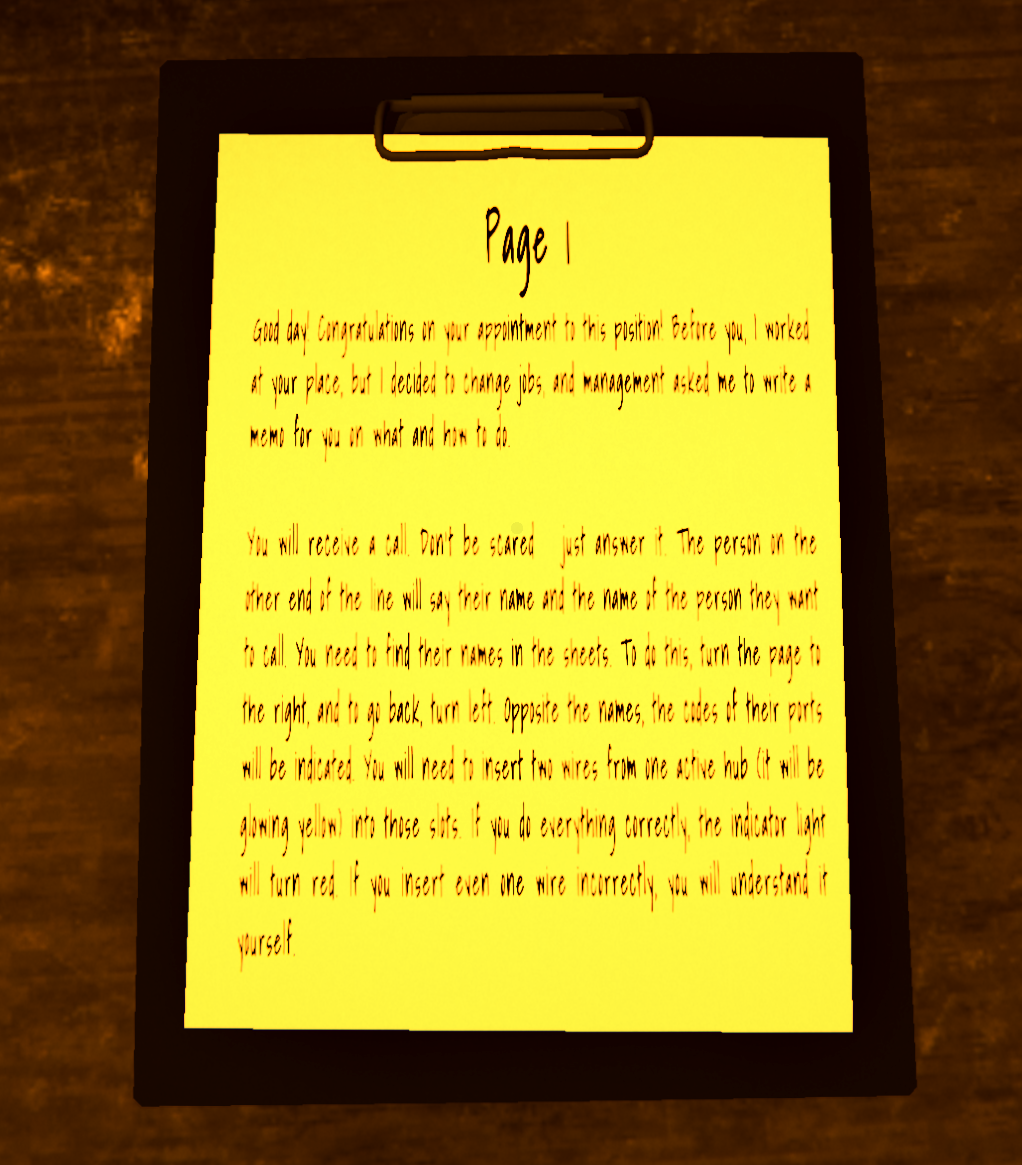 Page 1
Good day! Congratulations on your appointment to this position! Before you, I worked
at your place, but I decided to change jobs, and management asked me to write a
memo for you on what and how to do.
You will receive a call. Don't be scared just answer it. The person on the
other end of the line will say their name and the name of the person they want
to call. You need to find their names in the sheets. To do this, turn the page to
the right, and to go back, turn left. Opposite the names, the codes of their ports
will be indicated. You will need to insert two wires from one active hub (it will be
glowing yellow) into those slots. If you do everything correctly, the indicator light
will turn red. If you insert even one wire incorrectly, you will understand it
yourself.